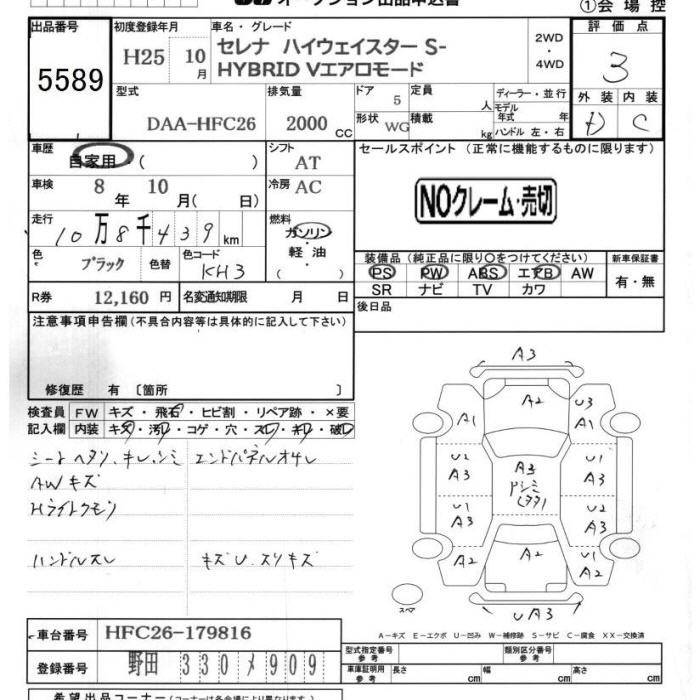 オークション出品申込書
①会場控
出品番号
5589
初度登録年月
H25 10月
車名・グレード
セレナ ハイウェイスター S-
HYBRID Vエアロモード
2WD
・
4WD
評価点
3
型式
DAA-HFC26
排気量
2000 CC
ドア 5
形状 WG
定員 人
積載 kg
ディーラー・並行
モデル年式 年
ハンドル 左・右
外装 内装
D C
車歴
自家用・( )
シフト AT
車検
8年 10月( 日)
冷房 AC
セールスポイント (正常に機能するものに限ります)
NOクレーム・売切
走行
10万8千439km
燃料
ガソリン
軽油
( )
色 ブラック 色替 色コード KH3
装備品(純正品に限り○をつけてください) 新車保証書
PS PW ABS エアB AW
SR ナビ TV カワ
有・無
R券 12,160円 名変通知期限 月 日
後日品
注意事項申告欄(不具合内容等は具体的に記入して下さい)
修復歴 有〔箇所 〕
検査員 FW キズ・飛石・ヒビ割・リペア跡・×要
記入欄 内装 キズ・汚レ・コゲ・穴・スレ・キレ・破レ
シートヘタリ、キレ、シミ エンドパネルオサレ
AWキズ
Hライトクモリ
ハンドルスレ キズU.スリキズ
A3
A2
A1
U3
A1
U2
A3
A3
U1
A3
U1
A3
U2
A3
A2
A2
U1
A2
スペア
UA3
A-キズ E-エクボ U-凹み W-補修跡 S-サビ C-腐食 XX-交換済
車台番号 HFC26-179816
登録番号 野田 330 メ 909
型式指定番号
参考
類別区分番号
参考
車庫証明用
参考
長さ 幅 高さ
希望出品コーナー(コーナーは各会場により異なります。)